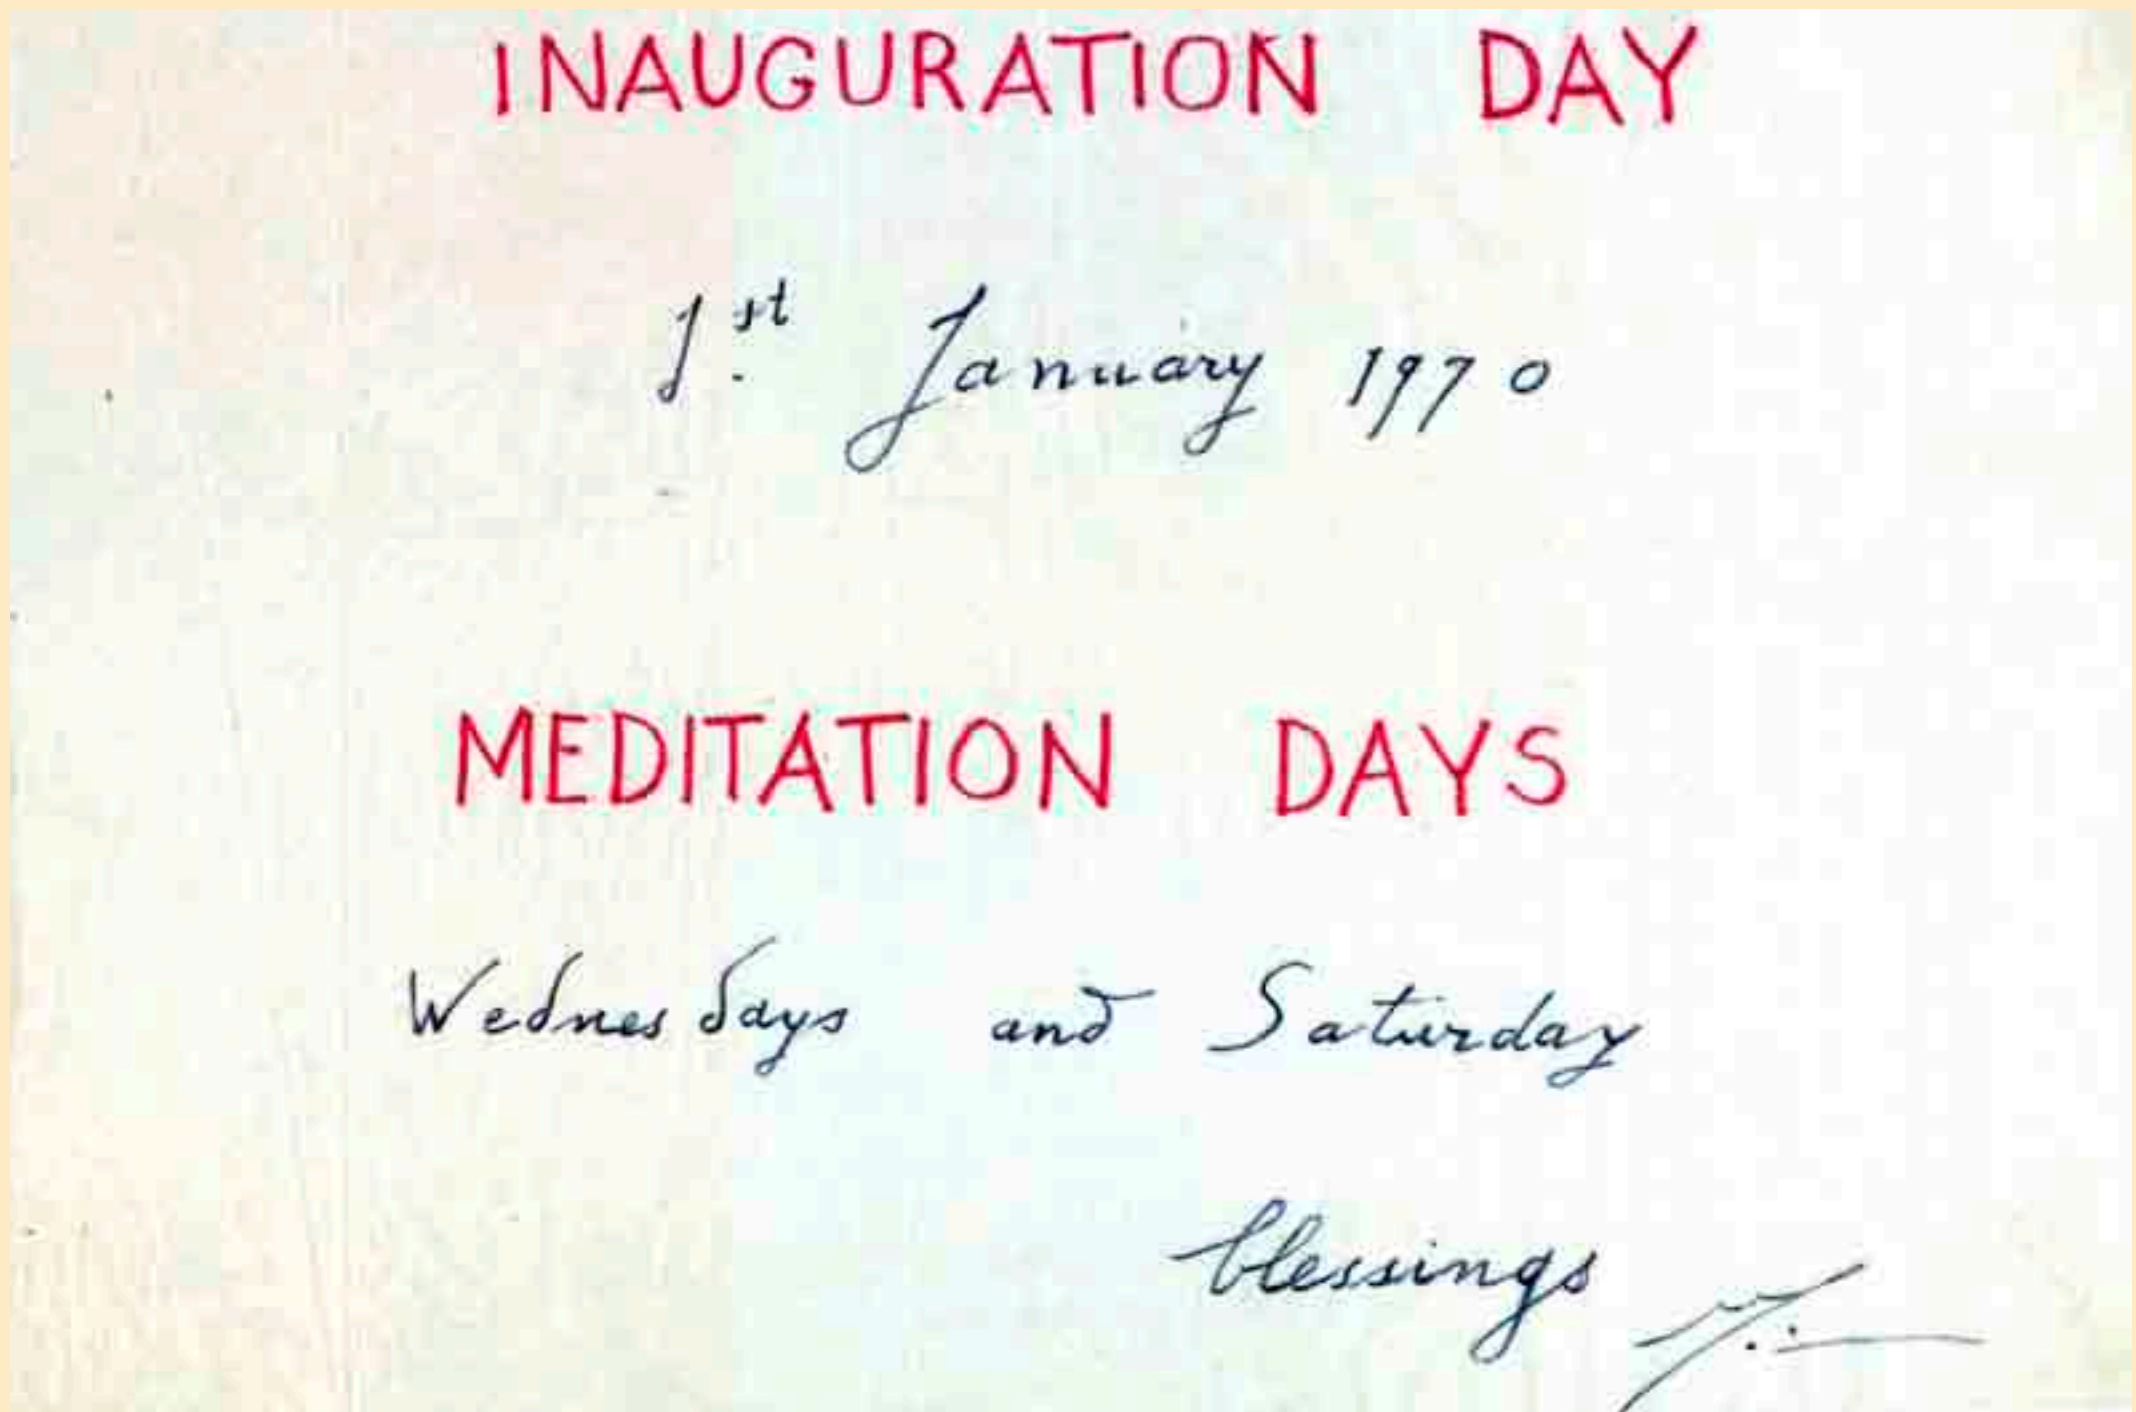 INAUGURATION DAY
1st January 1970
MEDITATION DAYS
Wednesdays and Saturday
blessings